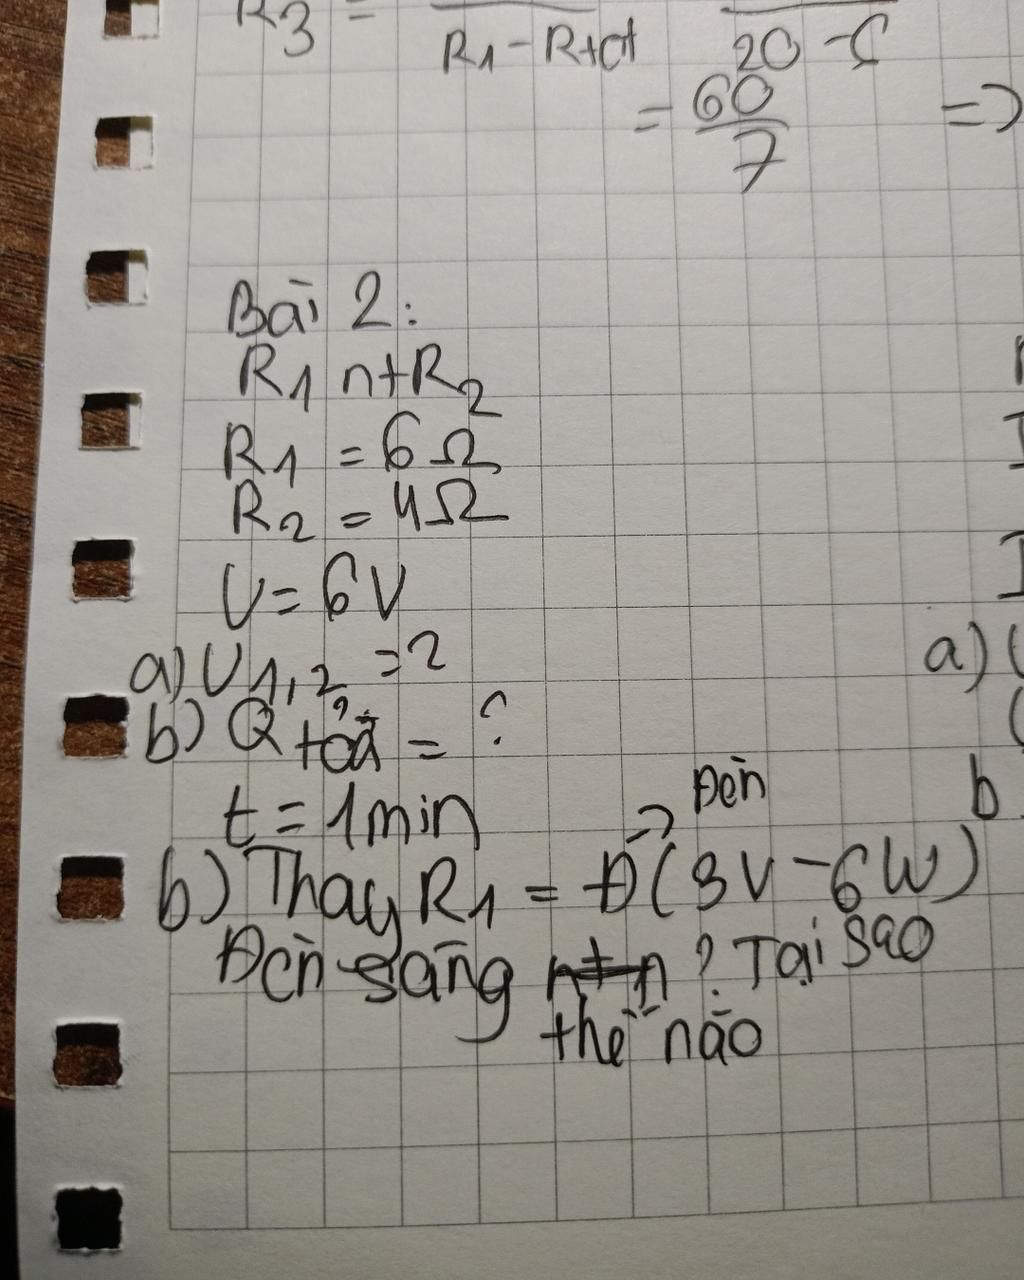 R3 =
R1 - R+đ 20 - 
= 60/7 =>
Bài 2:
R1 nt R2
R1 = 6Ω
R2 = 4Ω
U = 6V
a) U1,2 = ?
a)
b) Qtoả = ?
t = 1min
b
Đèn
b) Thay R1 = Đ(3V - 6W)
Đèn sáng ? Tại sao
thế nào